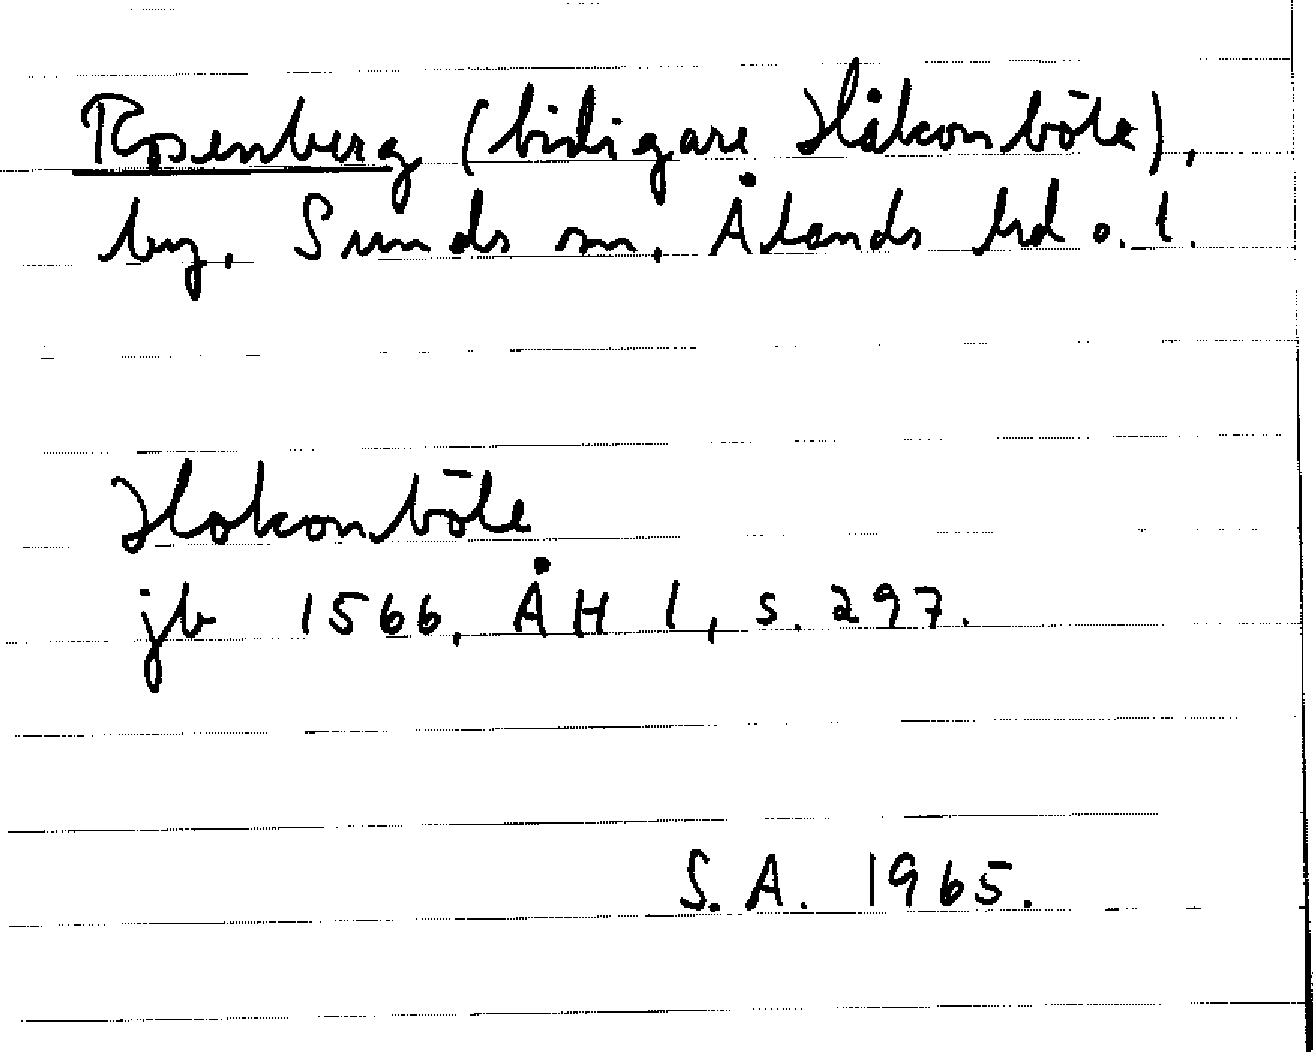 Rosenberg (tidigare Håkonböle),
by, Sunds sn, Ålands hd o. l.
Hokonböle
jb 1566, ÅH 1, s. 297.
S.A. 1965.